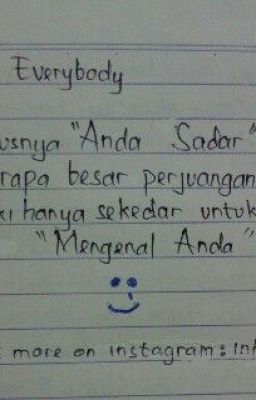 Everybody
usnya "Anda Sadar"
rapa besar perjuangan
ki hanya sekedar untuk
"Mengenal Anda"
more on instagram : Inf